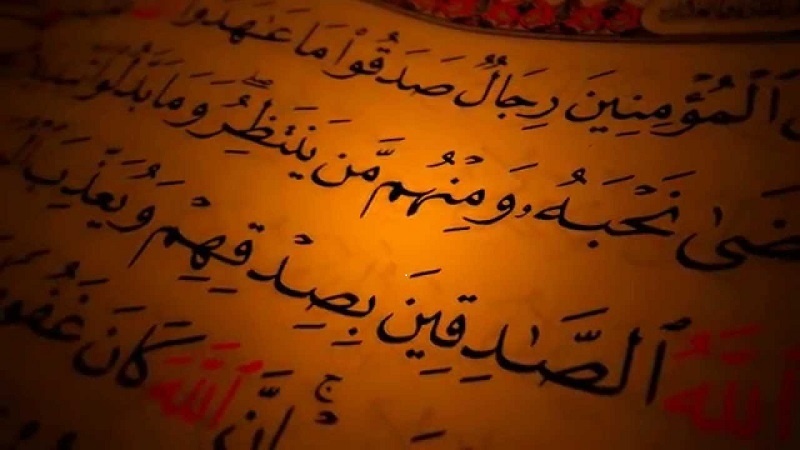 ٱلْمُؤْمِنِينَ رِجَالٌ صَدَقُوا۟ مَا عَـٰهَدُوا۟
نَحْبَهُۥ وَمِنْهُم مَّن يَنتَظِرُ ۖ وَمَا بَدَّلُوا۟
ٱللَّهُ ٱلصَّـٰدِقِينَ بِصِدْقِهِمْ وَيُعَذِّبَ
إِنَّ ٱللَّهَ كَانَ غَفُو